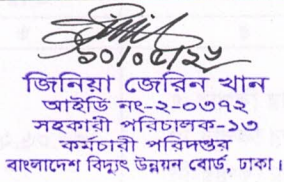 ১০/০৫/২৬
জিনিয়া জেরিন খান
আইডি নং-২-০৩৭২
সহকারী পরিচালক-১৩
কর্মচারী পরিদপ্তর
বাংলাদেশ বিদ্যুৎ উন্নয়ন বোর্ড, ঢাকা।